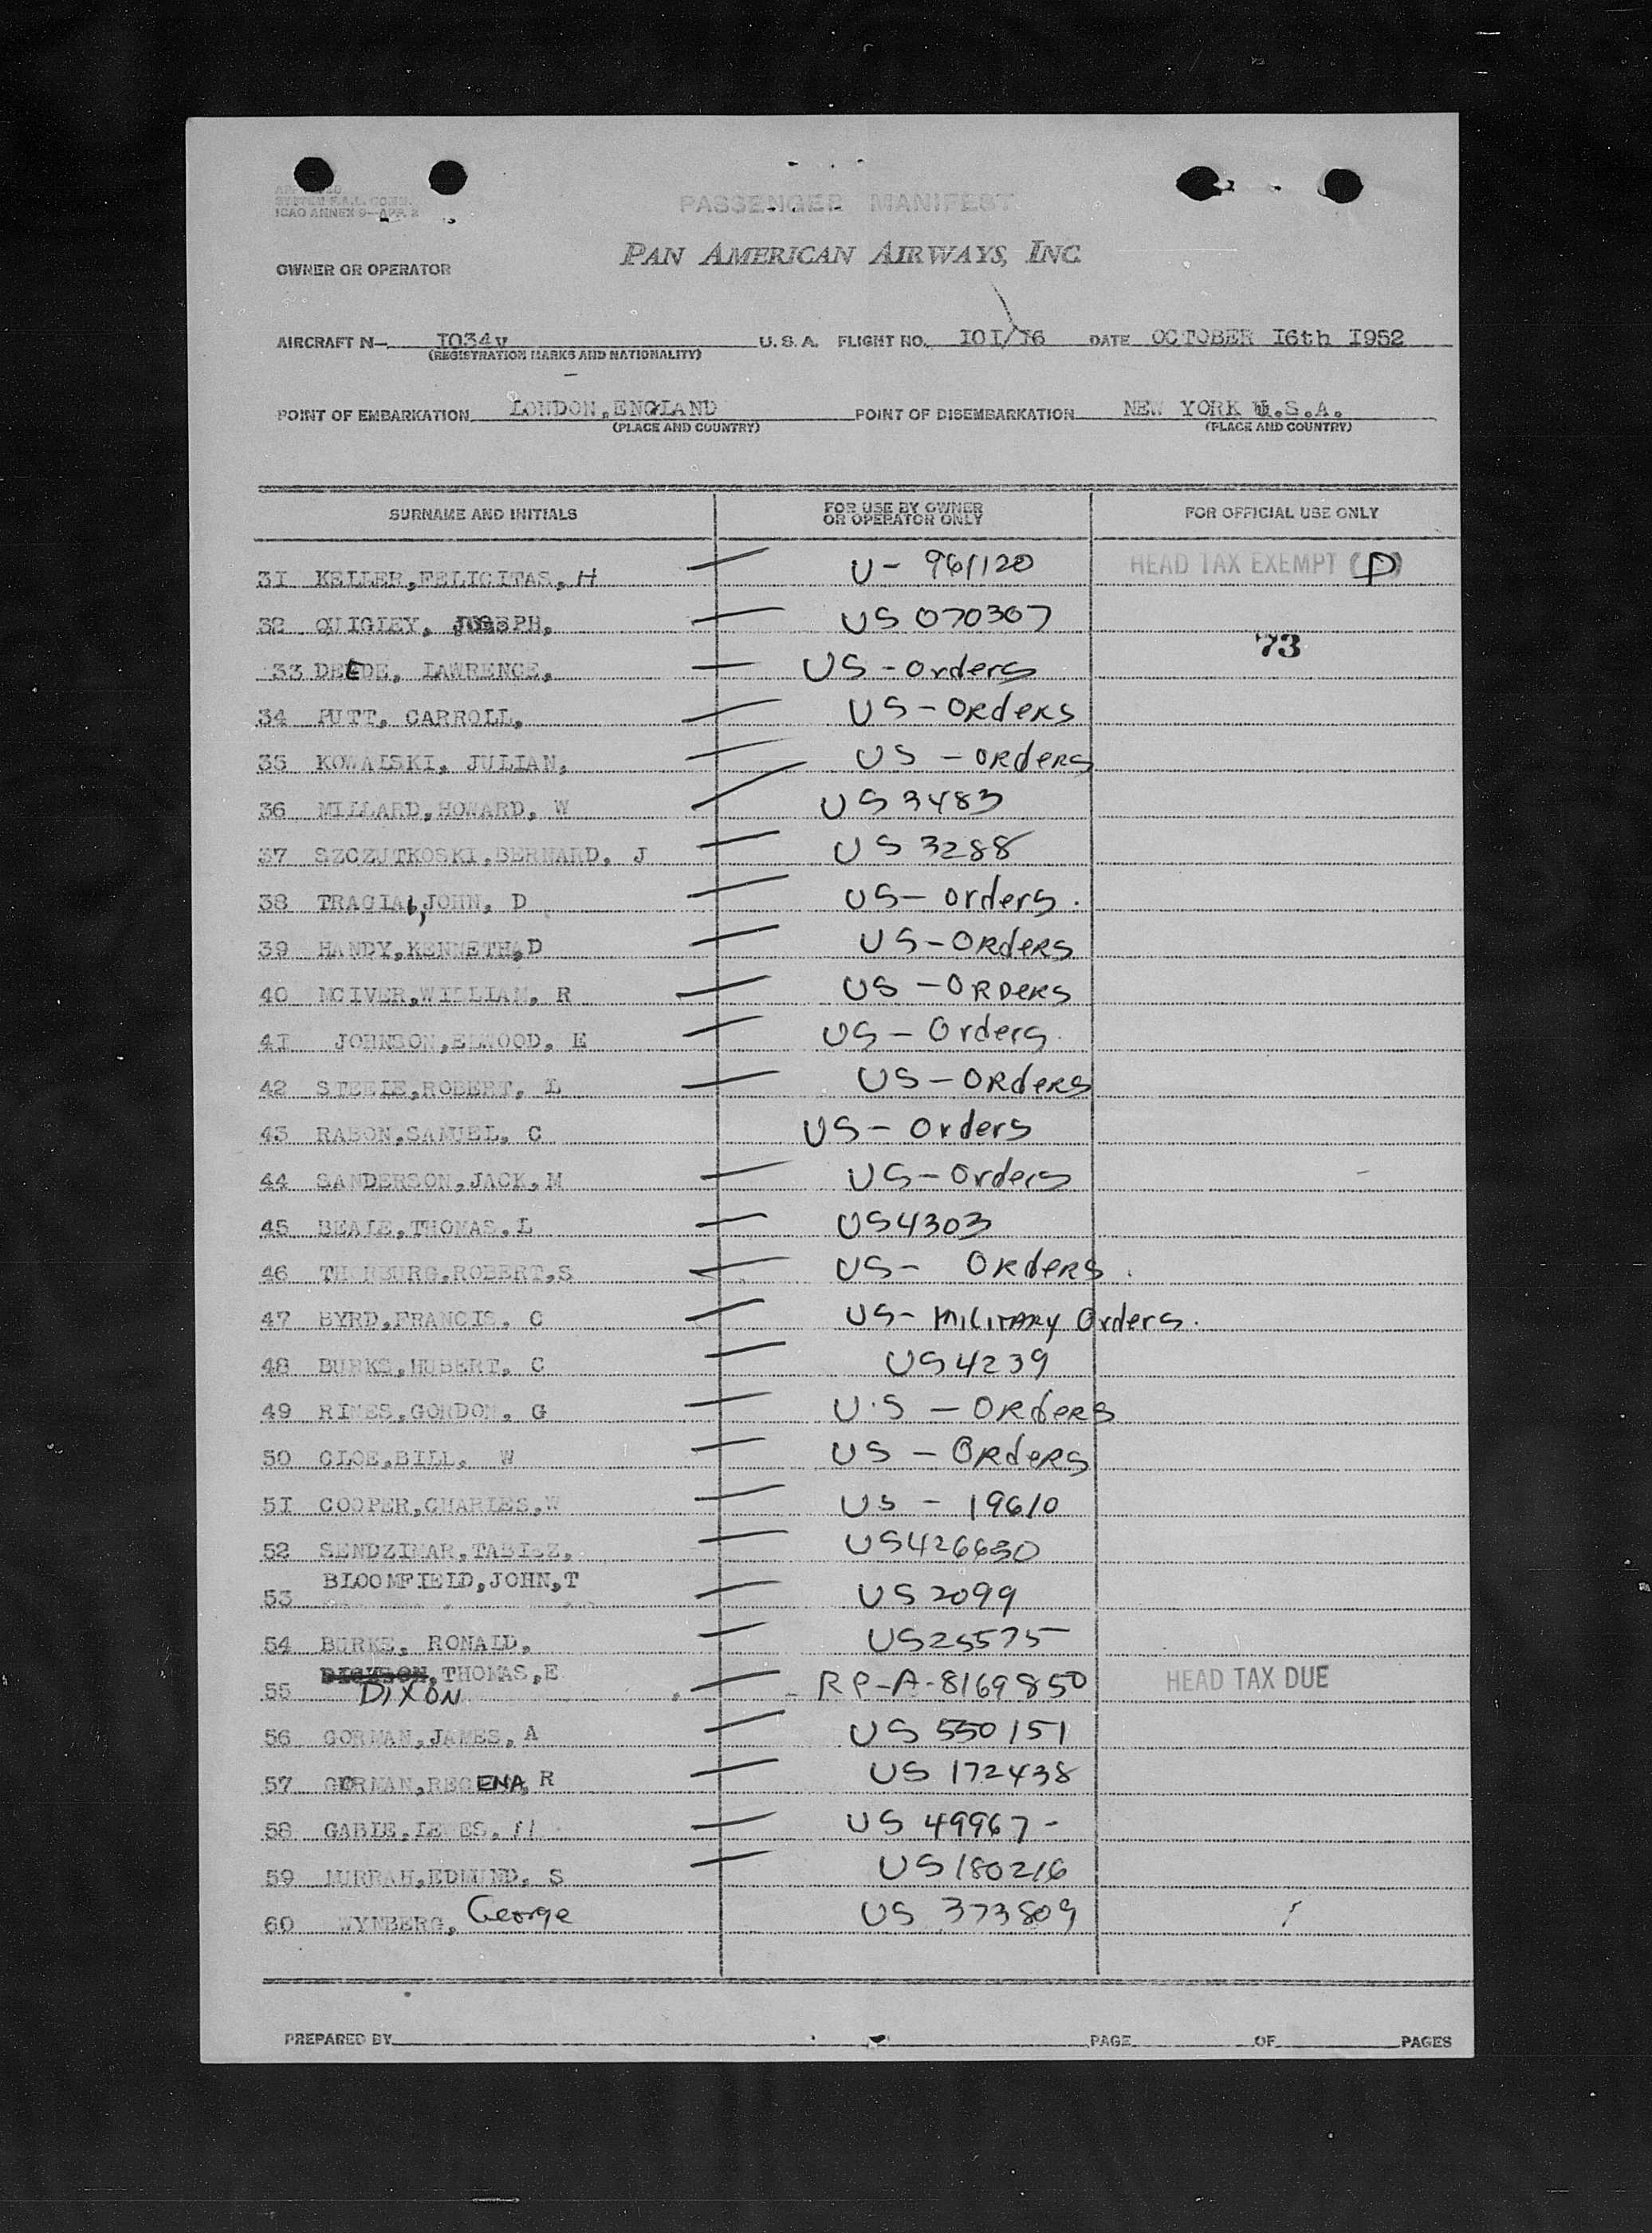 SYSTEM F.A.L. COMM.
ICAO ANNEX 9—APP. 2
PASSENGER MANIFEST
OWNER OR OPERATOR PAN AMERICAN AIRWAYS, INC.
AIRCRAFT N— I034v U. S. A. FLIGHT NO. IOI/I6 DATE OCTOBER I6th I952
(REGISTRATION MARKS AND NATIONALITY)
POINT OF EMBARKATION LONDON,ENGLAND POINT OF DISEMBARKATION NEW YORK U.S.A.
(PLACE AND COUNTRY) (PLACE AND COUNTRY)
SURNAME AND INITIALS FOR USE BY OWNER OR OPERATOR ONLY FOR OFFICIAL USE ONLY
3I KELLER,FELICITAS,H U- 961120 HEAD TAX EXEMPT (D)
32 QUIGLEY, JOSEPH, US 070307
73
33 DEEDE, LAWRENCE, US-orders
34 PUTT, CARROLL, US-ORdeRS
35 KOWALSKI, JULIAN, US - ORdeRS
36 MILLARD,HOWARD, W US 3483
37 SZCZUTKOSKI,BERNARD, J US 3288
38 JOHN, D US- orders.
39 HANDY,KENNETH,D US-ORdeRS
40 MCIVER,WILLIAM, R US -ORDeRS
4I JOHNSON,ELWOOD, E US- Orders.
42 STEELE,ROBERT, L US-ORdeRS
43 RABON,SAMUEL, C US- Orders
44 SANDERSON,JACK,M US-Orders
45 BEALE,THOMAS,L US4303
46 ROBERT,S US- ORders.
47 BYRD,FRANCIS, C US- MILITARY Orders.
48 BURKS,HUBERT, C US4239
49 RIMES,GORDON, G U.S - ORdeRS
50 CLOE,BILL, W US - ORdeRS
5I COOPER,CHARLES,W US - 19610
52 SENDZIMAR, US426630
53 BLOOMFIELD,JOHN,T US 2099
54 BURKE, RONALD, US25575
55 DICKSON,THOMAS,E RP-A-8169850 HEAD TAX DUE
DIXON
56 GORMAN,JAMES,A US 550151
57 GORMAN,REGENA,R US 172438
58 GABLE, H US 49967-
59 MURRAH,EDMUND, S US 180216
60 WYNBERG, George US 373809
PREPARED BY PAGE OF PAGES